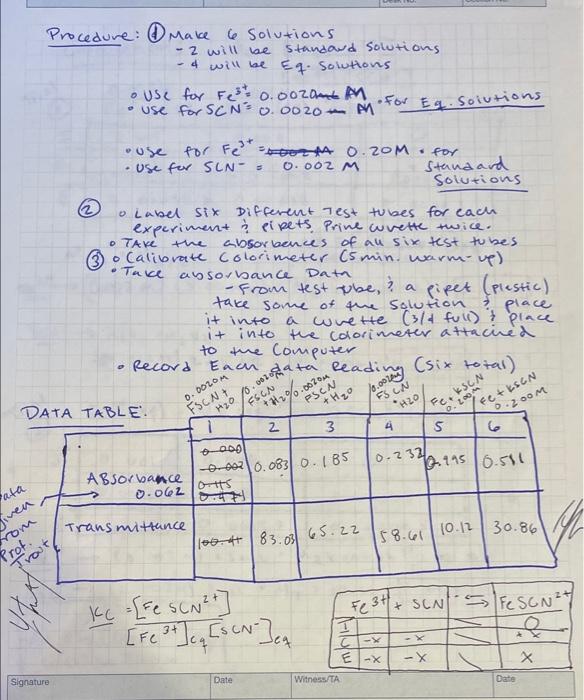 Procedure: ① Make 6 Solutions
- 2 will be Standard Solutions
- 4 will be Eq. Solutions
• Use for Fe³⁺= 0.0020 M
• Use for SCN⁻= 0.0020 M • For Eq. Solutions
• use for Fe³⁺ = 0.20M • for
• Use for SCN⁻ = 0.002 M Standard
Solutions
② • Label Six Different Test tubes for each
experiment & pipets. Prine cuvette twice.
• TAKe the absorbences of all six test tubes
③ • Calibrate Colorimeter (5 min. warm-up)
• Take absorbance Data
- From test tube, & a pipet (plastic)
take some of the solution & place
it into a cuvette (3/4 full) & place
it into the colorimeter attached
to the Computer
• Record Each data Reading (Six total)
0.0020M FSCN + H2O
0.0020M FSCN + H2O
0.0020M FSCN + H2O
0.0020M FSCN + H2O
Fe + KSCN 0.200M
Fe + KSCN 0.200M
DATA TABLE.
1 2 3 4 5 6
0.000
-0.002
0.115
0.471
Absorbance 0.083 0.185 0.232 0.995 0.511
0.062
Data Given From Prof.
Transmittance 100.41 83.03 65.22 58.61 10.12 30.86
Kc = [FeSCN²⁺]
[Fe³⁺]eq [SCN⁻]eq
Fe³⁺ + SCN⁻ ⇌ FeSCN²⁺
I 0
C -x -x +x
E -x -x x
Signature Date Witness/TA Date